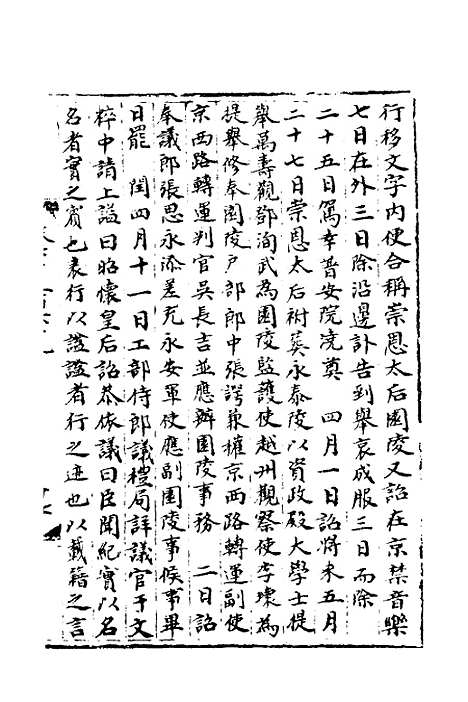 行移文字内使合稱崇恩太后園陵又詔在京禁音樂
七日在外三日除沿邊訃告到舉哀成服三日而除
二十五日駕幸普安院澆奠　四月一日詔將來五月
二十七日崇恩太后祔葬永泰陵以資政殿大學士提
舉萬壽觀鄧洵武為園陵監護使越州觀察使李瓌為
提舉修奉園陵戶部郎中張諤兼權京西路轉運副使
京西路轉運判官吳長吉並應辦園陵事務　二日詔
奉議郎張思永添差充永安軍使應副園陵事候事畢
日罷　閏四月十一日工部侍郎議禮局詳議官于文
粹中請上謚曰昭懷皇后詔恭依議曰臣聞紀實以名
名者實之賓也表行以謚謚者行之迹也以載籍之言